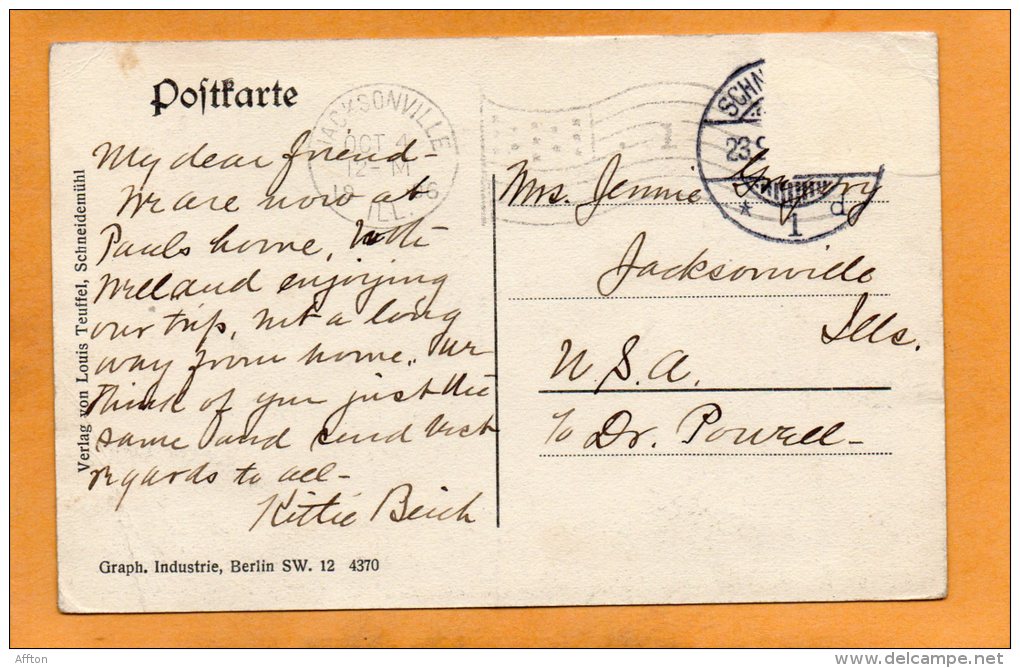 Postkarte
JACKSONVILLE
OCT 4
12-M
ILL.
SCHN
23.9
* 1 d
My dear friend-
We are now at
Pauls home, both
well and enjoying
our trip, not a long
way from home. We
think of you just the
same and send best
regards to all-
Kittie Beich
Mrs. Jennie
Jacksonville
Ills.
U.S.A.
c/o Dr. Powell-
Verlag von Louis Teuffel, Schneidemühl
Graph. Industrie, Berlin SW. 12 4370
Affton
delcampe.net